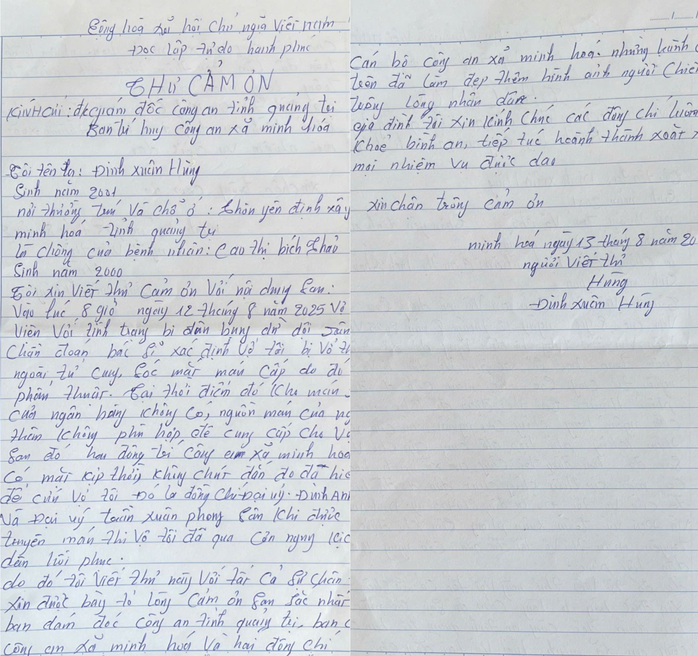 Cộng hoà xã hội chủ nghĩa Việt nam
Độc lập tự do hạnh phúc
THƯ CẢM ƠN
KÍNH GỬI: đ/c giám đốc công an tỉnh quảng trị
Ban chỉ huy công an xã minh hoá
Tôi tên là: Đinh Xuân Hùng
Sinh năm 2001
nơi thường trú và chỗ ở: thôn yên định xã
minh hoá tỉnh quảng trị
là chồng của bệnh nhân: Cao thị bích thảo
Sinh năm 2000
Tôi xin viết thư cảm ơn với nội dung sau:
Vào lúc 8 giờ ngày 12 tháng 8 năm 2025 vợ
viện với tình trạng bị đau bụng dữ dội
chẩn đoán bác sĩ xác định vợ tôi bị vỡ
ngoài tử cung, sốc mất máu cấp do đó
phẩu thuật. Tại thời điểm đó khi máu
của ngân hàng không có, nguồn máu của
thân không phù hợp để cung cấp cho vợ
Sau đó hai đồng chí công an xã minh hoá
có mặt kịp thời không chút đắn đo đã
để cứu vợ tôi Đó là đồng chí Đại uý. Đinh Anh
và Đại uý tuấn xuân phong Sau khi được
truyền máu thì vợ tôi đã qua cơn nguy kịch
dần hồi phục.
do đó tôi viết thư này với tất cả sự chân
xin được bày tỏ lòng cảm ơn sâu sắc nhất
ban dám đốc công an tỉnh quảng trị, ban
công an xã minh hoá và hai đồng chí
Cán bộ công an xã minh hoá. những hành
trên đã làm đẹp thêm hình ảnh người Chiến
trong lòng nhân dân.
gia đình tôi xin kính chúc các đồng chí luôn
khoẻ bình an, tiếp tục hoành thành xoất
mọi nhiệm vụ được dao
xin chân trọng cảm ơn
minh hoá ngày 13 tháng 8 năm 20
người viết thư
Hùng
Đinh Xuân Hùng